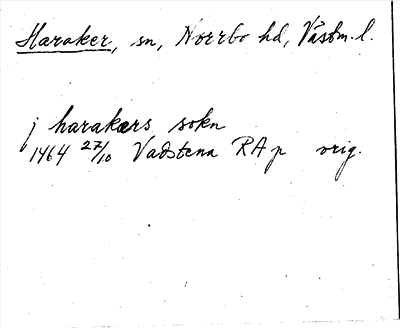 Haraker, sn, Norrbo hd, Västm. l.
j harakers sokn
1464 27/10 Vadstena RAp orig.